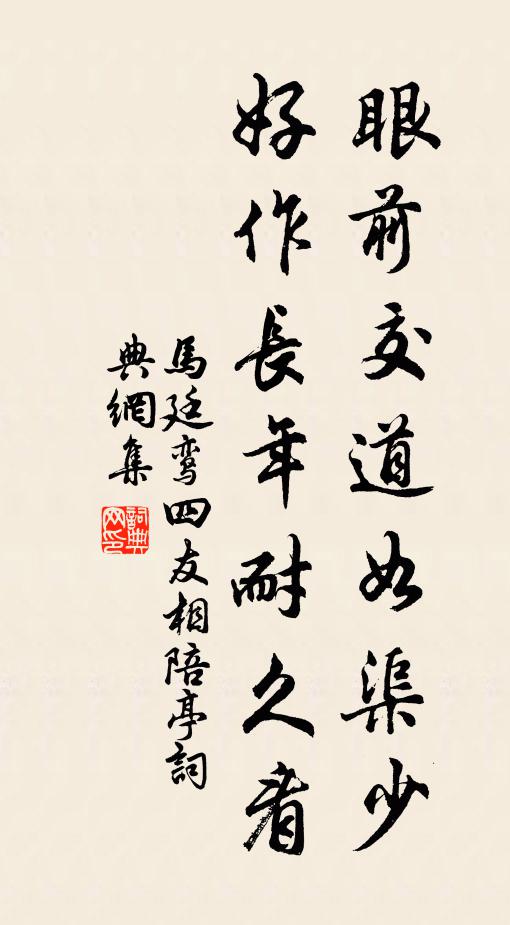 眼前交道如渠少
好作長年耐久看
馬廷鸞四友相陪亭詞
典網集
詞典網印